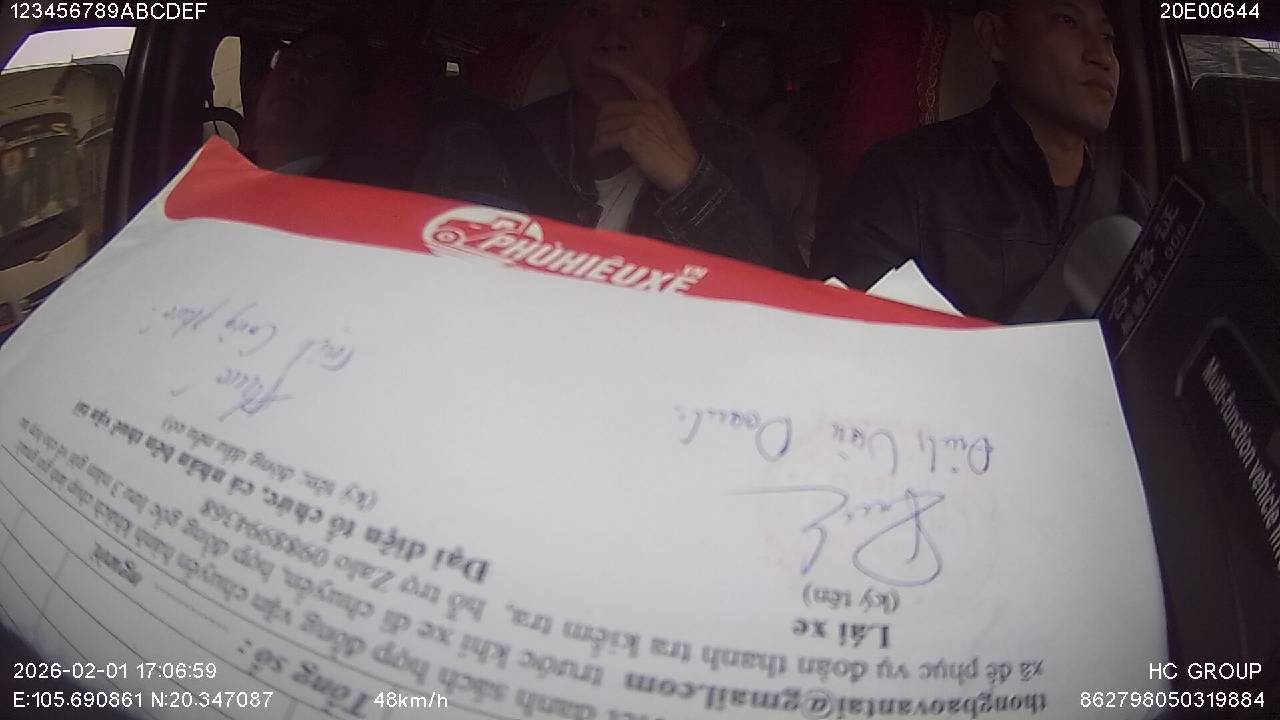 123456789ABCDEF
20E00644
PHÙHIỆUXE.VN
合格证
008
Multi-function vehicle
Trịnh Công Phúc
Phúc
Đinh Văn Doanh
(ký tên, đóng dấu nếu có)
Đại diện tổ chức, cá nhân bên thuê vận tải
(ký tên)
Lái xe
xã để phục vụ đoàn thanh tra kiểm tra, hỗ trợ Zalo 0988994368
thongbaovantai@gmail.com trước khi xe di chuyển, hợp đồng gốc lưu 3 năm
danh sách hợp đồng vận chuyển hành khách
Tổng số:
người.
2026-02-01 17:06:59
E:105.690861 N:20.347087
48km/h
HC GROUP
862798050319884